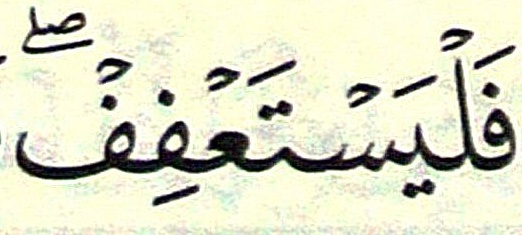 فَلْيَسْتَعْفِفْ ۖ